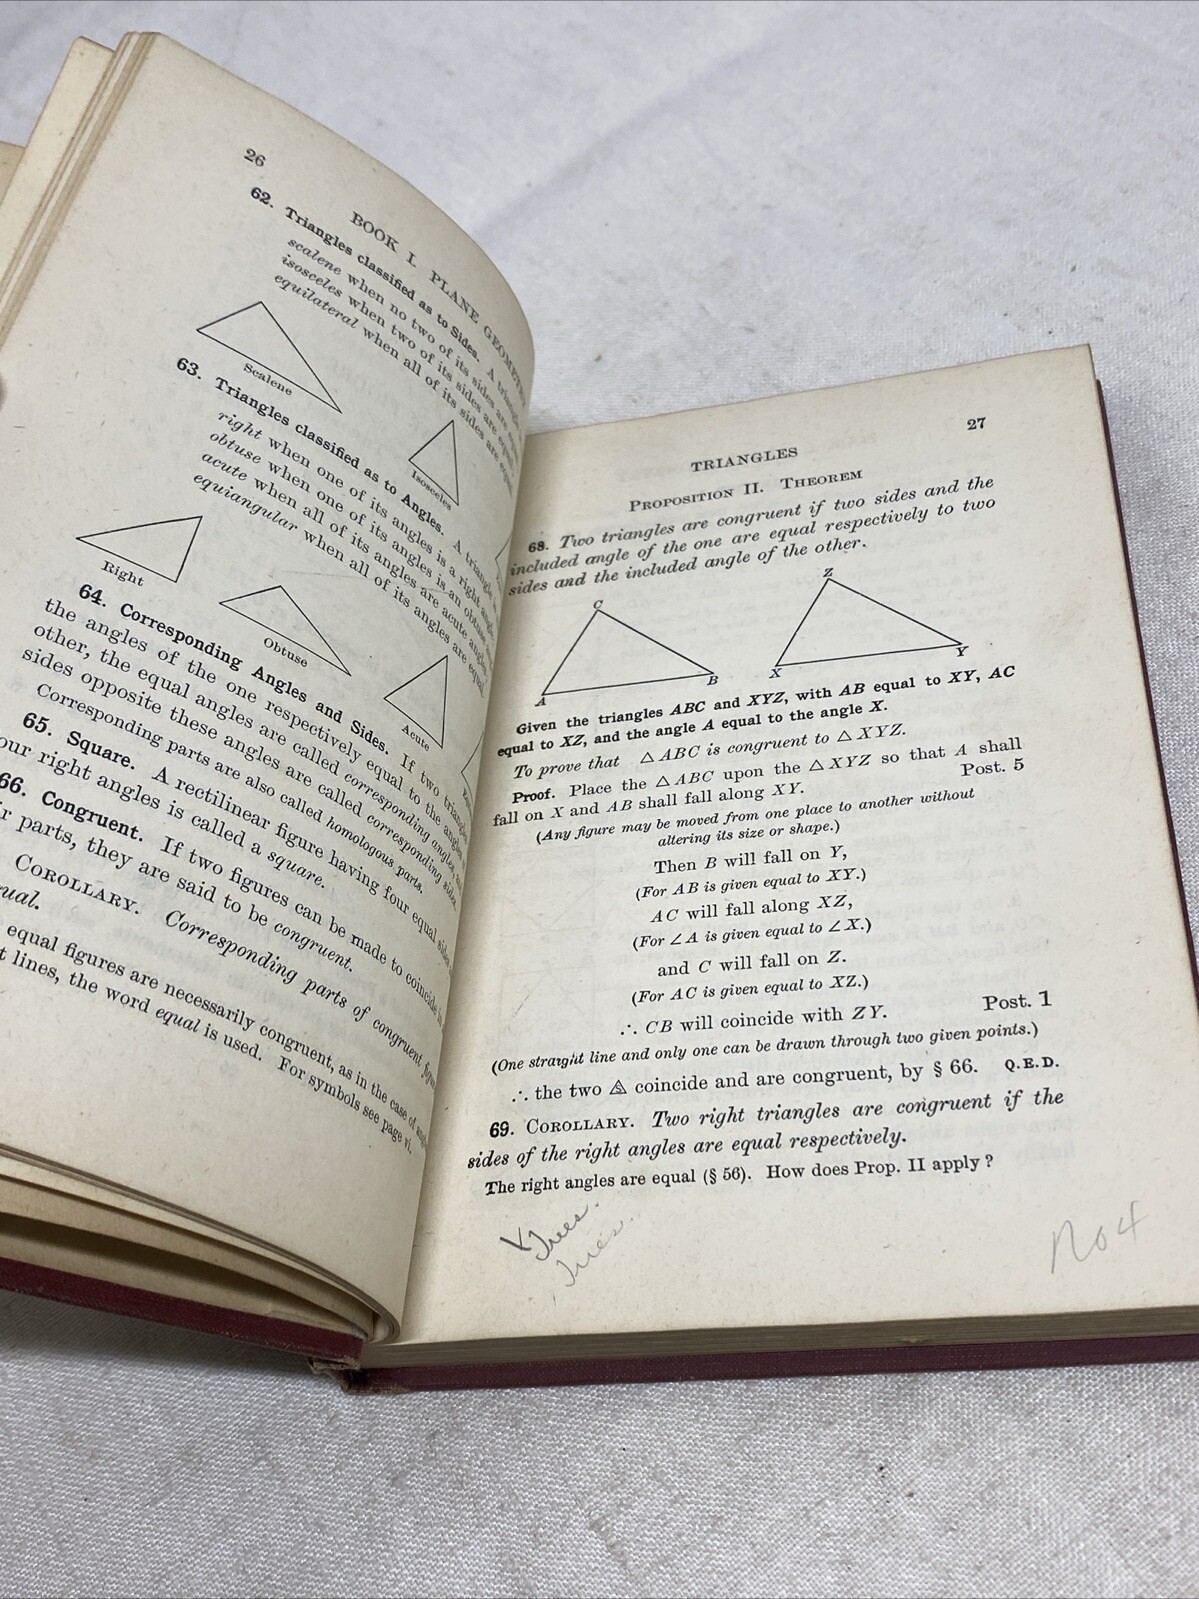 26
BOOK I. PLANE GEOMETRY
62. Triangles classified as to Sides. A triangle
scalene when no two of its sides are
isosceles when two of its sides are equal
equilateral when all of its sides are equal
Scalene
Isosceles
63. Triangles classified as to Angles. A triangle
right when one of its angles is a right angle
obtuse when one of its angles is an obtuse
acute when all of its angles are acute angles
equiangular when all of its angles are equal
Right
Obtuse
Acute
64. Corresponding Angles and Sides. If two triangles
the angles of the one respectively equal to the angles
other, the equal angles are called corresponding angles, and
sides opposite these angles are called corresponding sides
Corresponding parts are also called homologous parts.
65. Square. A rectilinear figure having four equal sides
our right angles is called a square.
66. Congruent. If two figures can be made to coincide in
r parts, they are said to be congruent.
COROLLARY. Corresponding parts of congruent
ual.
equal figures are necessarily congruent, as in the case of
t lines, the word equal is used. For symbols see page vi.
27
TRIANGLES
PROPOSITION II. THEOREM
68. Two triangles are congruent if two sides and the
included angle of the one are equal respectively to two
sides and the included angle of the other.
C
A
B
Z
X
Y
Given the triangles ABC and XYZ, with AB equal to XY, AC
equal to XZ, and the angle A equal to the angle X.
To prove that △ABC is congruent to △XYZ.
Proof. Place the △ABC upon the △XYZ so that A shall
fall on X and AB shall fall along XY. Post. 5
(Any figure may be moved from one place to another without
altering its size or shape.)
Then B will fall on Y,
(For AB is given equal to XY.)
AC will fall along XZ,
(For ∠A is given equal to ∠X.)
and C will fall on Z.
(For AC is given equal to XZ.)
∴ CB will coincide with ZY. Post. 1
(One straight line and only one can be drawn through two given points.)
∴ the two △s coincide and are congruent, by § 66. Q.E.D.
69. COROLLARY. Two right triangles are congruent if the
sides of the right angles are equal respectively.
The right angles are equal (§ 56). How does Prop. II apply?
Tues.
Tues.
No 4